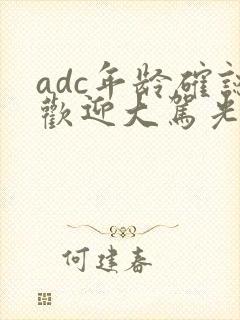 adc年龄確認
歡迎大駕光
何建春